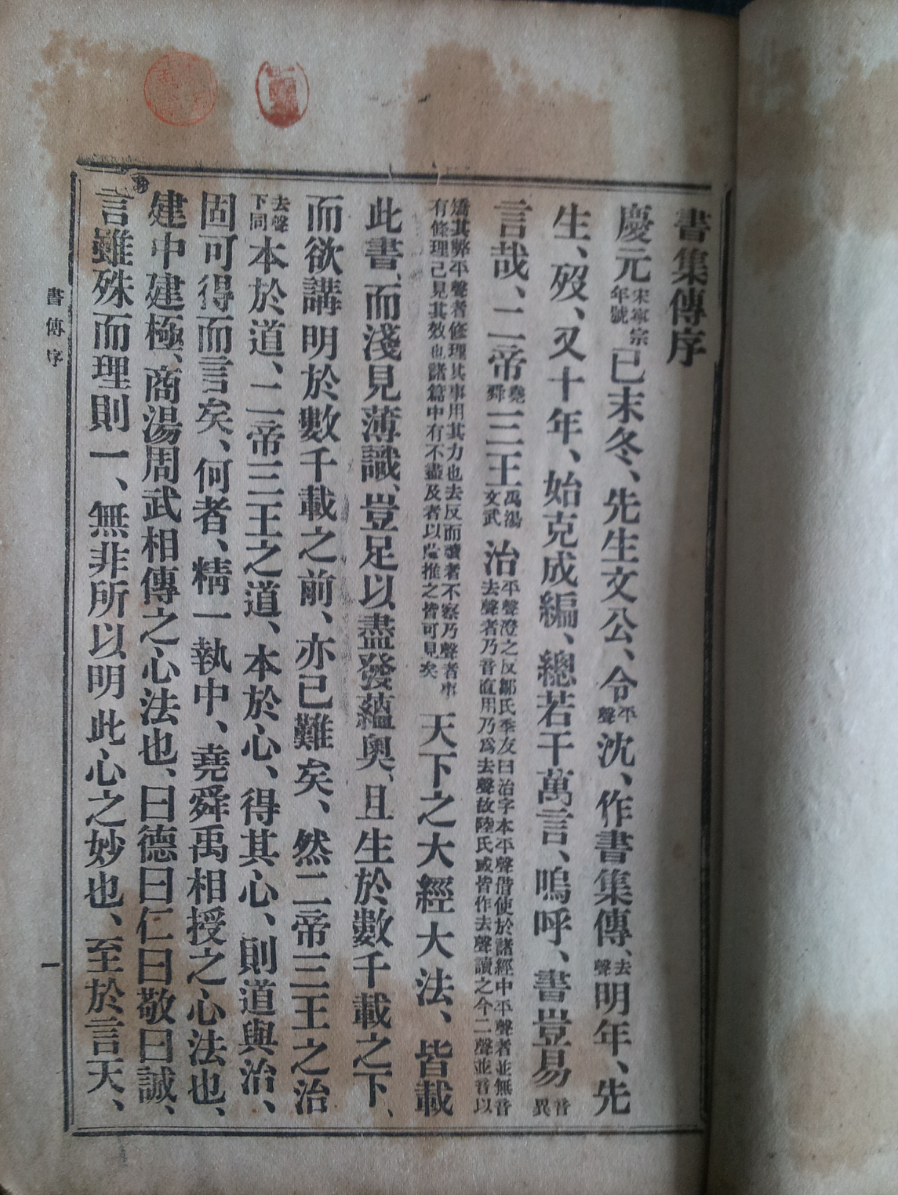 書集傳序
慶元宋寧宗年號已末冬、先生文公、令平聲沈、作書集傳、去聲明年、先
生、歿、又十年、始克成編、總若干萬言、嗚呼、書豈易音異
言哉、二帝堯舜三王禹湯文武治平聲澄之反鄒氏季友曰治字本平聲借使於諸經中平聲者並無音去聲者乃音直用乃爲去聲故陸氏或皆作去聲讀之今二聲並音以
矯其弊平聲者修理其事用其力也去反而讀者不察乃聲者事有條理已見其效也諸篇中有不盡及者以推之皆可見矣天下之大經大法、皆載
此書、而淺見薄識、豈足以盡發蘊奥、且生於數千載之下、
而欲講明於數千載之前、亦已難矣、然二帝三王之治
去聲下同本於道、二帝三王之道、本於心、得其心、則道與治、
固可得而言矣、何者、精一執中、堯舜禹相授之心法也、
建中建極、商湯周武相傳之心法也、曰德曰仁曰敬曰誠、
言雖殊而理則一、無非所以明此心之妙也、至於言天、
書傳序
一